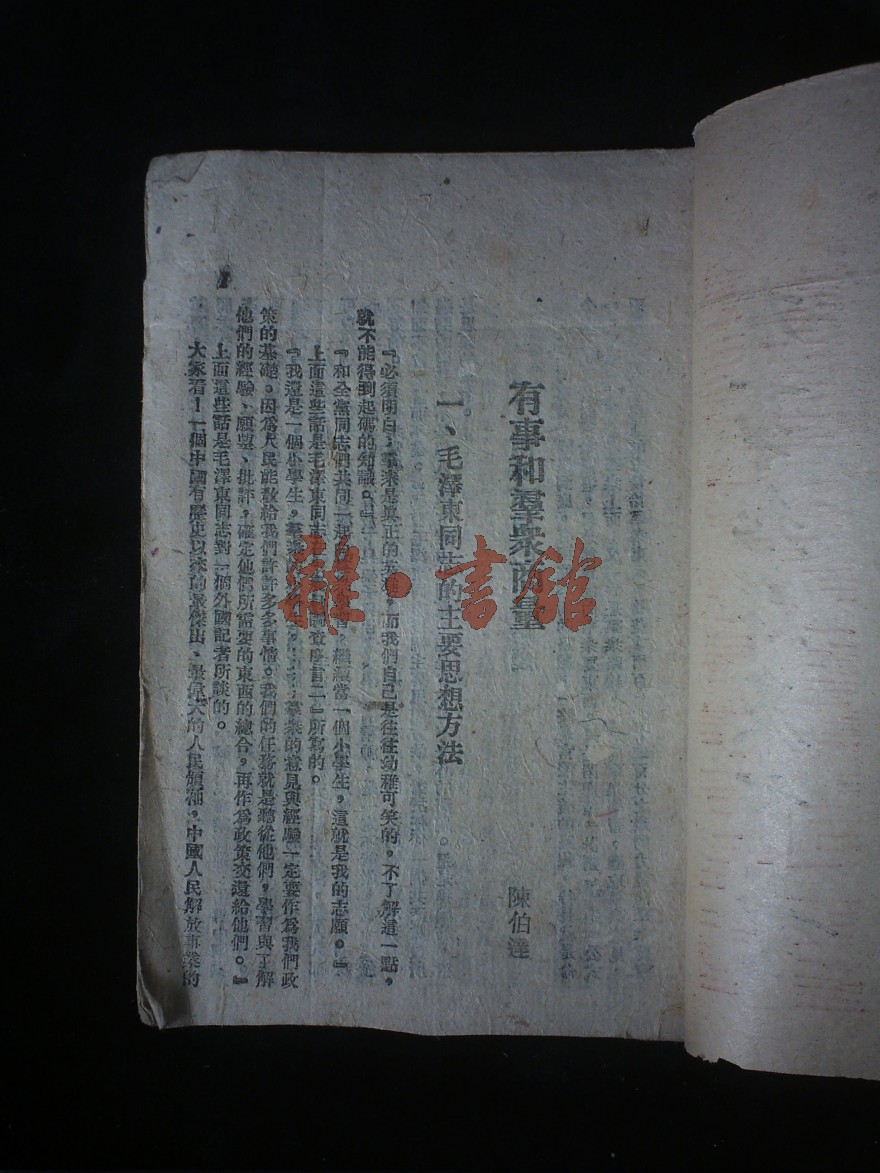 有事和羣衆商量
陳伯達
一、毛澤東同志的主要思想方法
『必須明白：羣衆是真正的英雄，而我們自己是往往幼稚可笑的，不了解這一點，
就不能得到起碼的知識。』
『和全黨同志們共同一起向羣衆學習，繼續當一個小學生，這就是我的志願。』
上面這些話是毛澤東同志在『農村調查序言二』所寫的。
『我還是一個小學生，羣衆羣衆的意見與經驗一定要作爲我們政
策的基礎。因爲人民能教給我們許許多多事情。我們的任務就是聽從他們，學習與了解
他們的經驗、願望、批評，確定他們所需要的東西的總合，再作爲政策交還給他們。』
上面這些話是毛澤東同志對一個外國記者所談的。
大家看！一個中國有歷史以來的最傑出、最偉大的人民領袖，中國人民解放事業的
雜·書館